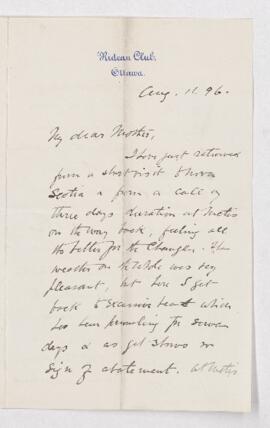 Rideau Club,
Ottawa.
Aug. 11. 96.
My dear Mother,
I have just returned
from a short visit to Nova
Scotia & from a call of
three days duration at Metis
on the way back, feeling all
the better for the change. The
weather on the whole was very
pleasant, but here I get
back to excessive heat which
has been prevailing for seven
days & as yet shows no
sign of abatement. At Metis